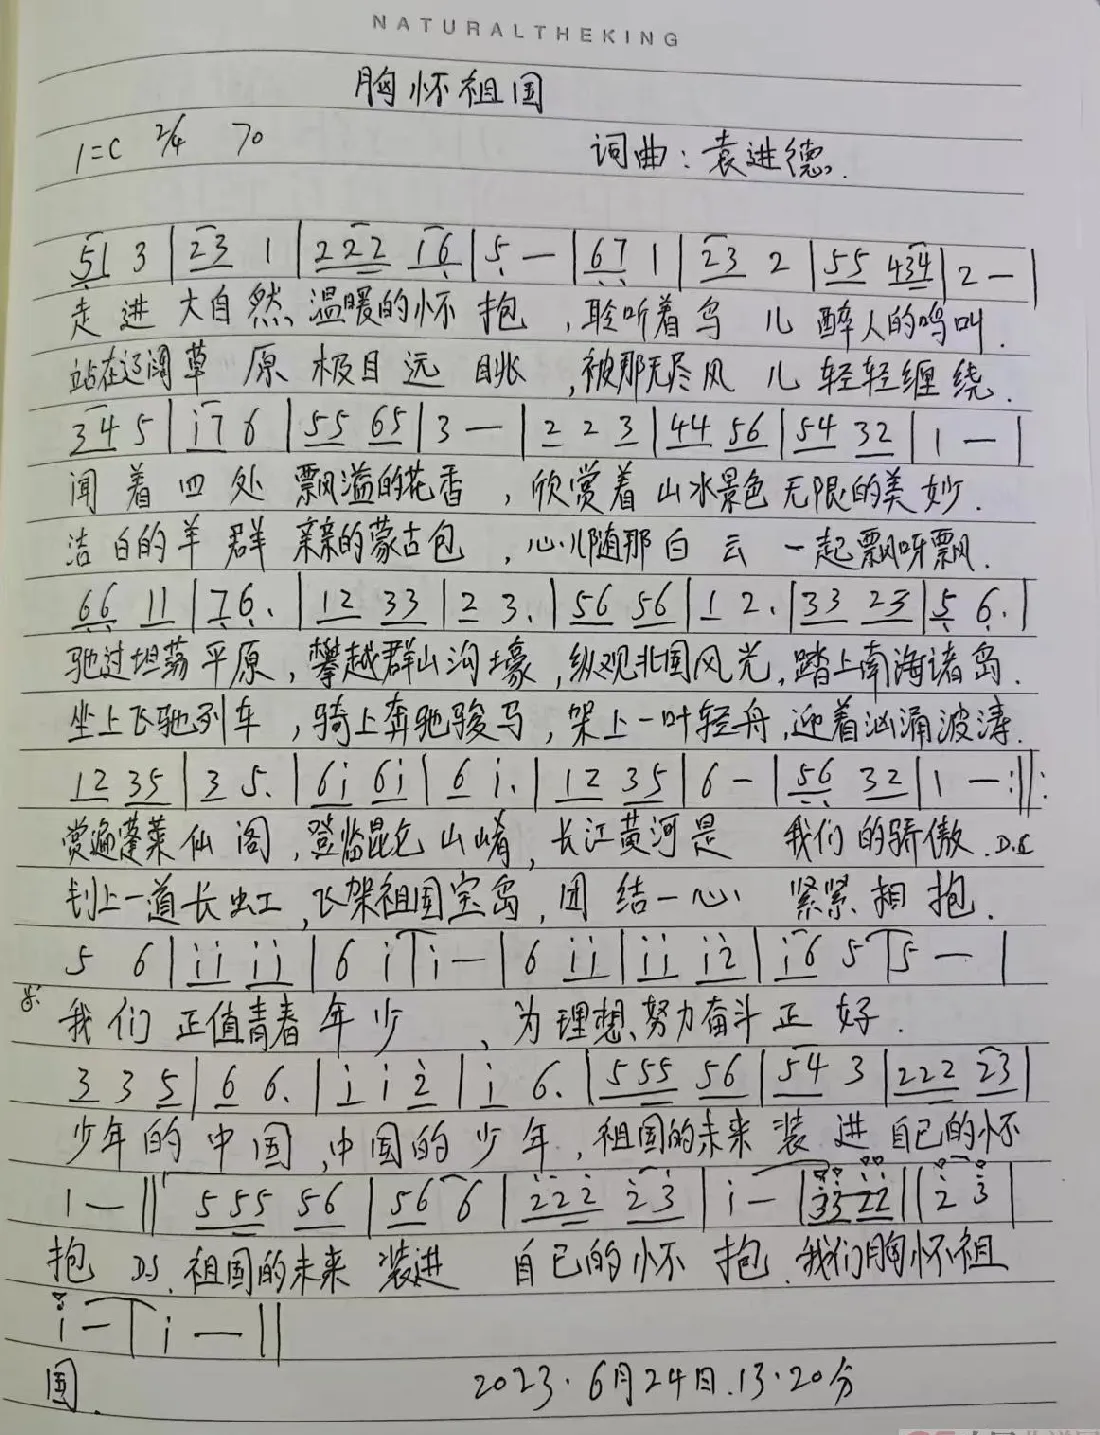 NATURALTHEKING
胸怀祖国
1=C 2/4 70 词曲：袁进德.
51 3 | 23 1 | 222 16 | 5 — | 67 1 | 23 2 | 55 434 | 2 — |
走进大自然温暖的怀抱，聆听着鸟儿醉人的鸣叫.
站在辽阔草原极目远眺，被那无尽风儿轻轻缠绕.
34 5 | i7 6 | 55 65 | 3 — | 2 2 3 | 44 56 | 54 32 | 1 — |
闻着四处飘溢的花香，欣赏着山水景色无限的美妙.
洁白的羊群亲亲的蒙古包，心儿随那白云一起飘呀飘.
66 11 | 76. | 12 33 | 2 3. | 56 56 | 1 2. | 33 23 | 5 6. |
驰过坦荡平原，攀越群山沟壕，纵观北国风光，踏上南海诸岛.
坐上飞驰列车，骑上奔驰骏马，架上一叶轻舟，迎着汹涌波涛.
12 35 | 3 5. | 6i 6i | 6 i. | 12 35 | 6 — | 56 32 | 1 — :||:
赏遍蓬莱仙阁，登临昆仑山嵴，长江黄河是我们的骄傲. D.C
划上一道长虹，飞架祖国宝岛，团结一心紧紧相抱.
5 6 | ii ii | 6 i | i — | 6 ii | ii i2 | i6 5 | 5 — |
我们正值青春年少、为理想、努力奋斗正好.
3 3 5 | 6 6. | i i 2 | i 6. | 555 56 | 54 3 | 222 23 |
少年的中国，中国的少年，祖国的未来装进自己的怀
1 — || 555 56 | 56 6 | 222 23 | i — | 33 22 || 2 3 |
抱 DS.祖国的未来装进自己的怀抱.我们胸怀祖
i — | i — ||
国.
2023.6月24日.13.20分